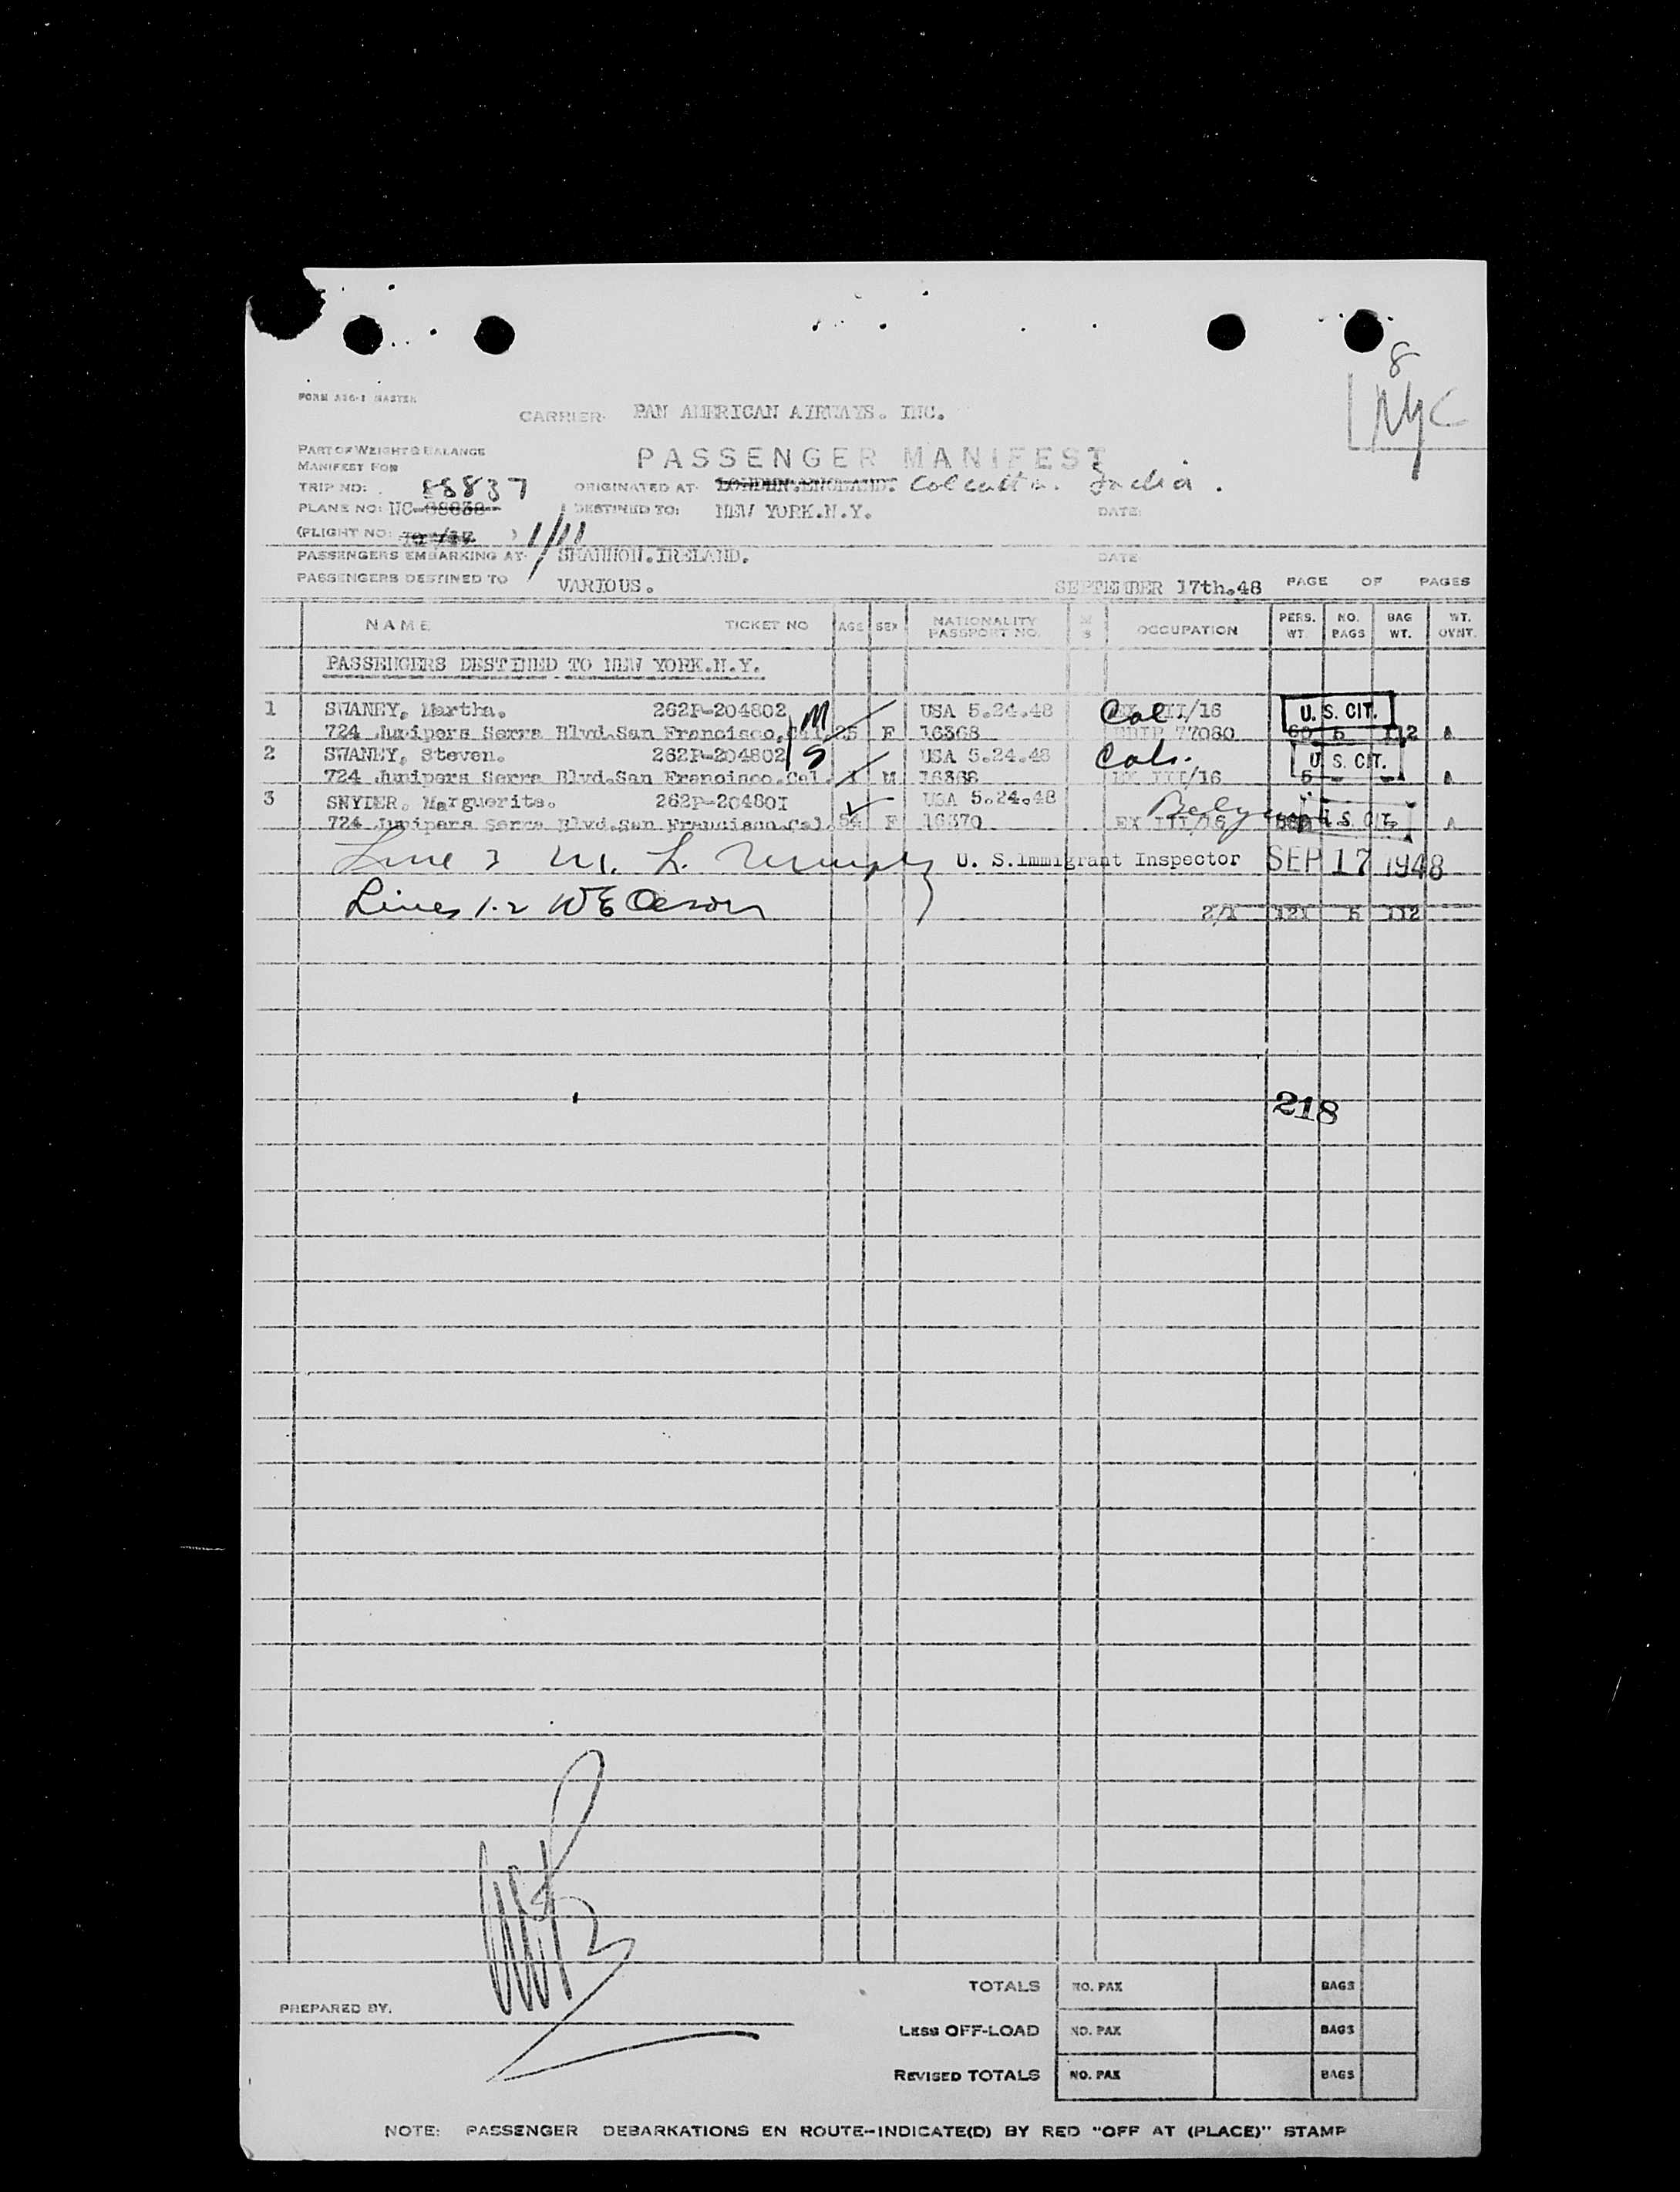 8
NYC
FORM A26-1 MASTER
CARRIER- PAN AMERICAN AIRWAYS. INC.
PART OF WEIGHT & BALANCE
MANIFEST FOR
PASSENGER MANIFEST
TRIP NO: 88837 ORIGINATED AT- LONDON.ENGLAND. Calcutta. India.
PLANE NO: NC-88838 DESTINED TO: NEW YORK.N.Y. DATE:
(FLIGHT NO: ) 1/11
PASSENGERS EMBARKING AT- SHANNON.IRELAND. DATE
PASSENGERS DESTINED TO VARIOUS. SEPTEMBER 17th.48 PAGE OF PAGES
NAME TICKET NO AGE SEX NATIONALITY PASSPORT NO. M S OCCUPATION PERS. WT. NO. BAGS BAG WT. WT. OVNT.
PASSENGERS DESTINED TO NEW YORK.N.Y.
1 SWANEY, Martha. 262P-204802 M USA 5.24.48 Cal. EX III/16 U. S. CIT.
724 Junipera Serra Blvd.San Francisco,Cal. 25 F 16368 77080 60 5 112 A
2 SWANEY, Steven. 262P-204802 S USA 5.24.48 Cal. U. S. CIT.
724 Junipera Serra Blvd.San Francisco.Cal. 1 M 16368 EX III/16 5 - - A
3 SNYDER. Marguerite. 262P-204801 USA 5.24.48 Belgium
724 Junipera Serra Blvd.San Francisco.Cal. 54 F 16370 EX III/16 U. S. CIT. A
Line 3 M. L. Murphy U. S. Immigrant Inspector SEP 17 1948
Lines 1-2 W E
2/1 121 5 112
218
TOTALS NO. PAX BAGS
PREPARED BY.
LESS OFF-LOAD NO. PAX BAGS
REVISED TOTALS NO. PAX BAGS
NOTE: PASSENGER DEBARKATIONS EN ROUTE-INDICATE(D) BY RED "OFF AT (PLACE)" STAMP